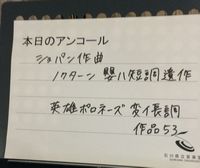 本日のアンコール
ショパン作曲
ノクターン 嬰ハ短調 遺作
英雄ポロネーズ 変イ長調
作品53